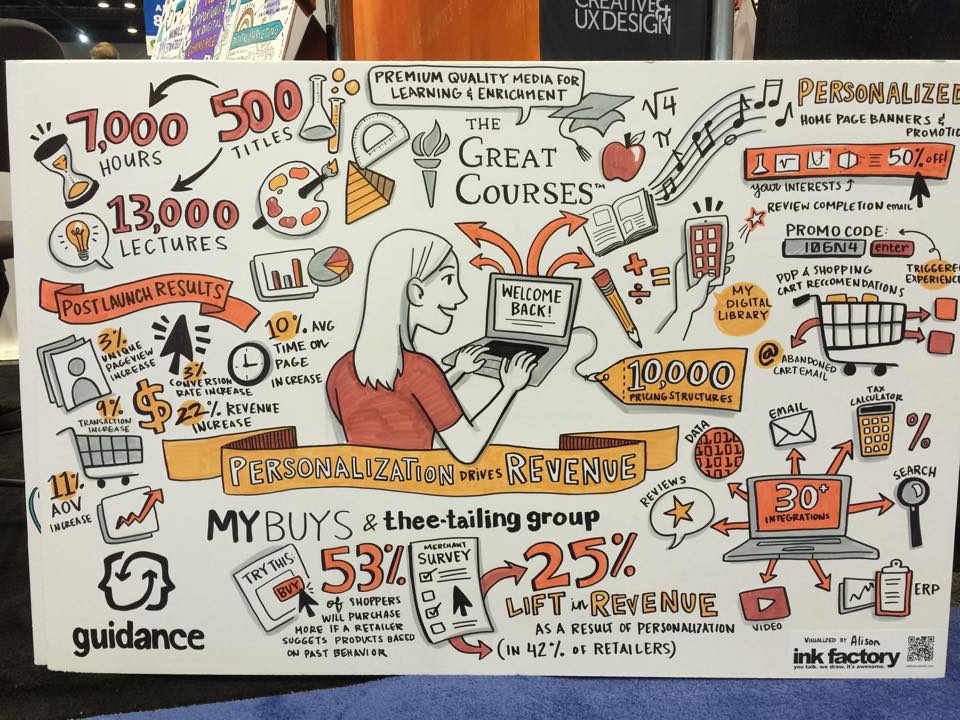 CREATIVE &
UX DESIGN
DIGITAL
PREMIUM QUALITY MEDIA FOR
LEARNING & ENRICHMENT
7,000
HOURS
500
TITLES
13,000
LECTURES
THE
GREAT
COURSES™
√4
π
PERSONALIZED
HOME PAGE BANNERS &
PROMOTIO
50% off!
your INTERESTS
REVIEW COMPLETION email
PROMO CODE:
10GN4 enter
TRIGGERED
EXPERIENCE
PDP & SHOPPING
CART RECOMMENDATIONS
@ ABANDONED
CART EMAIL
MY
DIGITAL
LIBRARY
WELCOME
BACK!
+ - ÷ =
10,000
PRICING STRUCTURES
POST LAUNCH RESULTS
3%
UNIQUE
PAGEVIEW
INCREASE
3%
CONVERSION
RATE INCREASE
10% AVG
TIME ON
PAGE
INCREASE
9%
TRANSACTION
INCREASE
$
22% REVENUE
INCREASE
11%
AOV
INCREASE
PERSONALIZATION DRIVES REVENUE
MYBUYS & thee-tailing group
TRY THIS:
BUY
53%
of SHOPPERS
WILL PURCHASE
MORE IF A RETAILER
SUGGESTS PRODUCTS BASED
ON PAST BEHAVIOR
MERCHANT
SURVEY
25%
LIFT in REVENUE
AS A RESULT OF PERSONALIZATION
(IN 42% OF RETAILERS)
30+
INTEGRATIONS
DATA
EMAIL
TAX
CALCULATOR
%
SEARCH
REVIEWS
VIDEO
ERP
guidance
VISUALIZED BY Alison
ink factory
you talk. we draw. it's awesome.